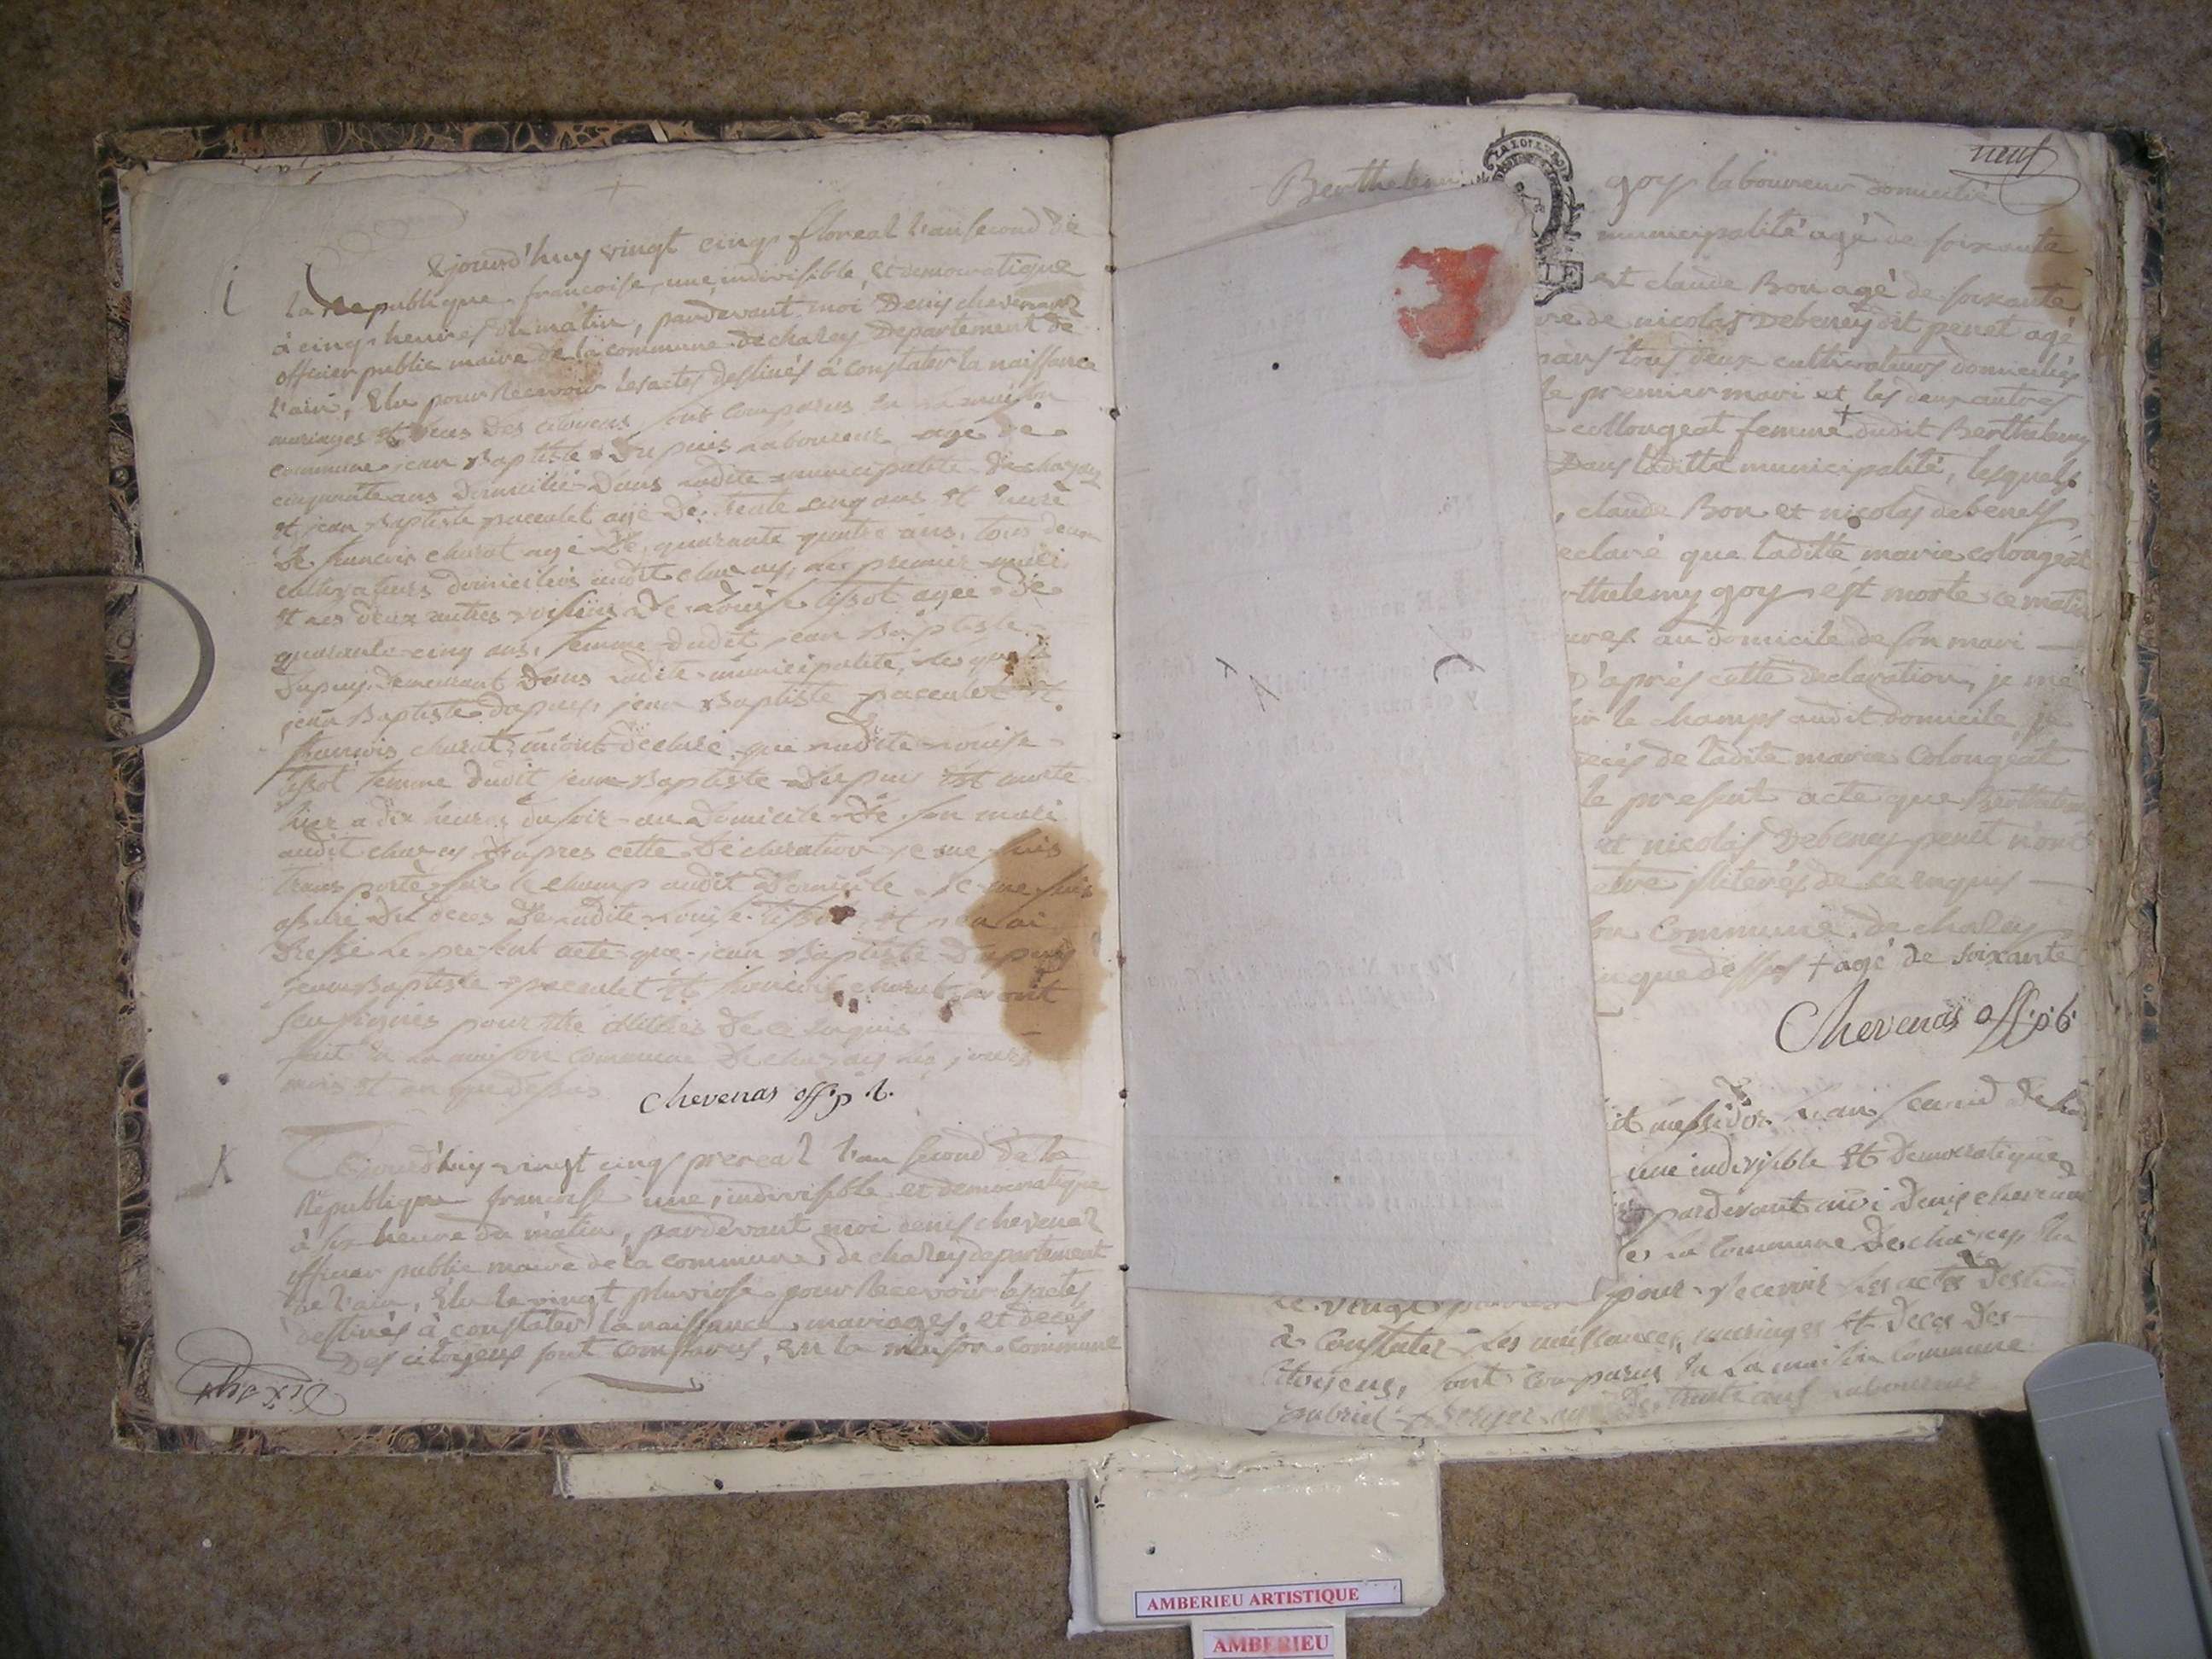 i
Ajourd'huy vingt cinq floreal l'an second de
la Republique francoise, une, indivisible, et democratique
à cinq heures du matin, pardevant moi Denis chevenaz
officier public maire de la commune de chazey Departement de
l'ain, Elu pour Recevoir les actes destinés à constater la naissance
mariages et deces Des citoyens sont comparus En la maison
commune jean Baptiste Dupuis Laboureur agé de
cinquante ans Domicilié Dans ladite municipalité De chazey
et jean Baptiste pacealet agé De trente cinq ans et
De francois charat agé De quarante quatre ans, tous deux
cultivateurs domiciliés audit chazey, le premier mari
et les deux autres voisins De Louise tissot agée De
quarante cinq ans, femme dudit jean Baptiste
Dupuy Demeurant Dans ladite municipalité, lesquels
jean Baptiste dupuis, jean Baptiste pacealet et
francois charat, m'ont declaré que ladite Louise
tissot femme dudit jean Baptiste Dupuis est morte
hier a dix heures du soir au Domicile De son mari
audit chazey D'apres cette Declaration je me suis
transporté sur le champ audit Domicile je me suis
assuré du deces De ladite Louise tissot et j'en ai
Dressé Le present acte que jean Baptiste Dupuis
jean Baptiste pacealet et francois charat n'ont
seu signés pour etre illiterés De ce Enquis
fait En La maison commune De chazey les jours
mois et an que dessus
chevenas off. p. b.
K
Ejourd'huy vingt cinq prereal l'an second de la
Republique francoise une, indivisible et democratique
à six heure du matin, pardevant moi denis chevenaz
officier public maire de la commune de chazey departement
de l'ain, Elu le vingt pluviose pour Recevoir les actes
destinés à constater la naissance mariages, et decés
Des citoyens sont comparus, En la maison commune
neuf
Berthelem goy laboureur domicilié
municipalité agé de soixante
et claude Bon agé de soixante
de nicolas Debeney dit penet agé
ans tous deux cultivateurs domiciliés
le premier mari et les deux autres
collongeat femme + dudit Berthelemy
Dans laditte municipalité, lesquels
, claude Bon et nicolas debeney
eclaré que laditte marie colongeat
thelemy goy est morte ce matin
ures au domicile de son mari
D'aprés cette declaration, je me
le champs audit domicile, je
ecés de ladite marie Colongeat
le present acte que Berthelem
et nicolas Debeney penet n'ont
etre illiterés de ce enquis
on Commune de chazey
que dessus + agé de soixante
Chevenas off. p. b.
it messidor L'an second de la
une indivisible Et Democratique
pardevant moi Denis chevenas
La Commune De chazey Elu
Le vingt pour Recevoir Les actes Destinés
à Constater Les naissances, mariages Et Deces Des
Citoyens, sont Comparus En La maison Commune
gabriel
AMBERIEU ARTISTIQUE
AMBERIEU